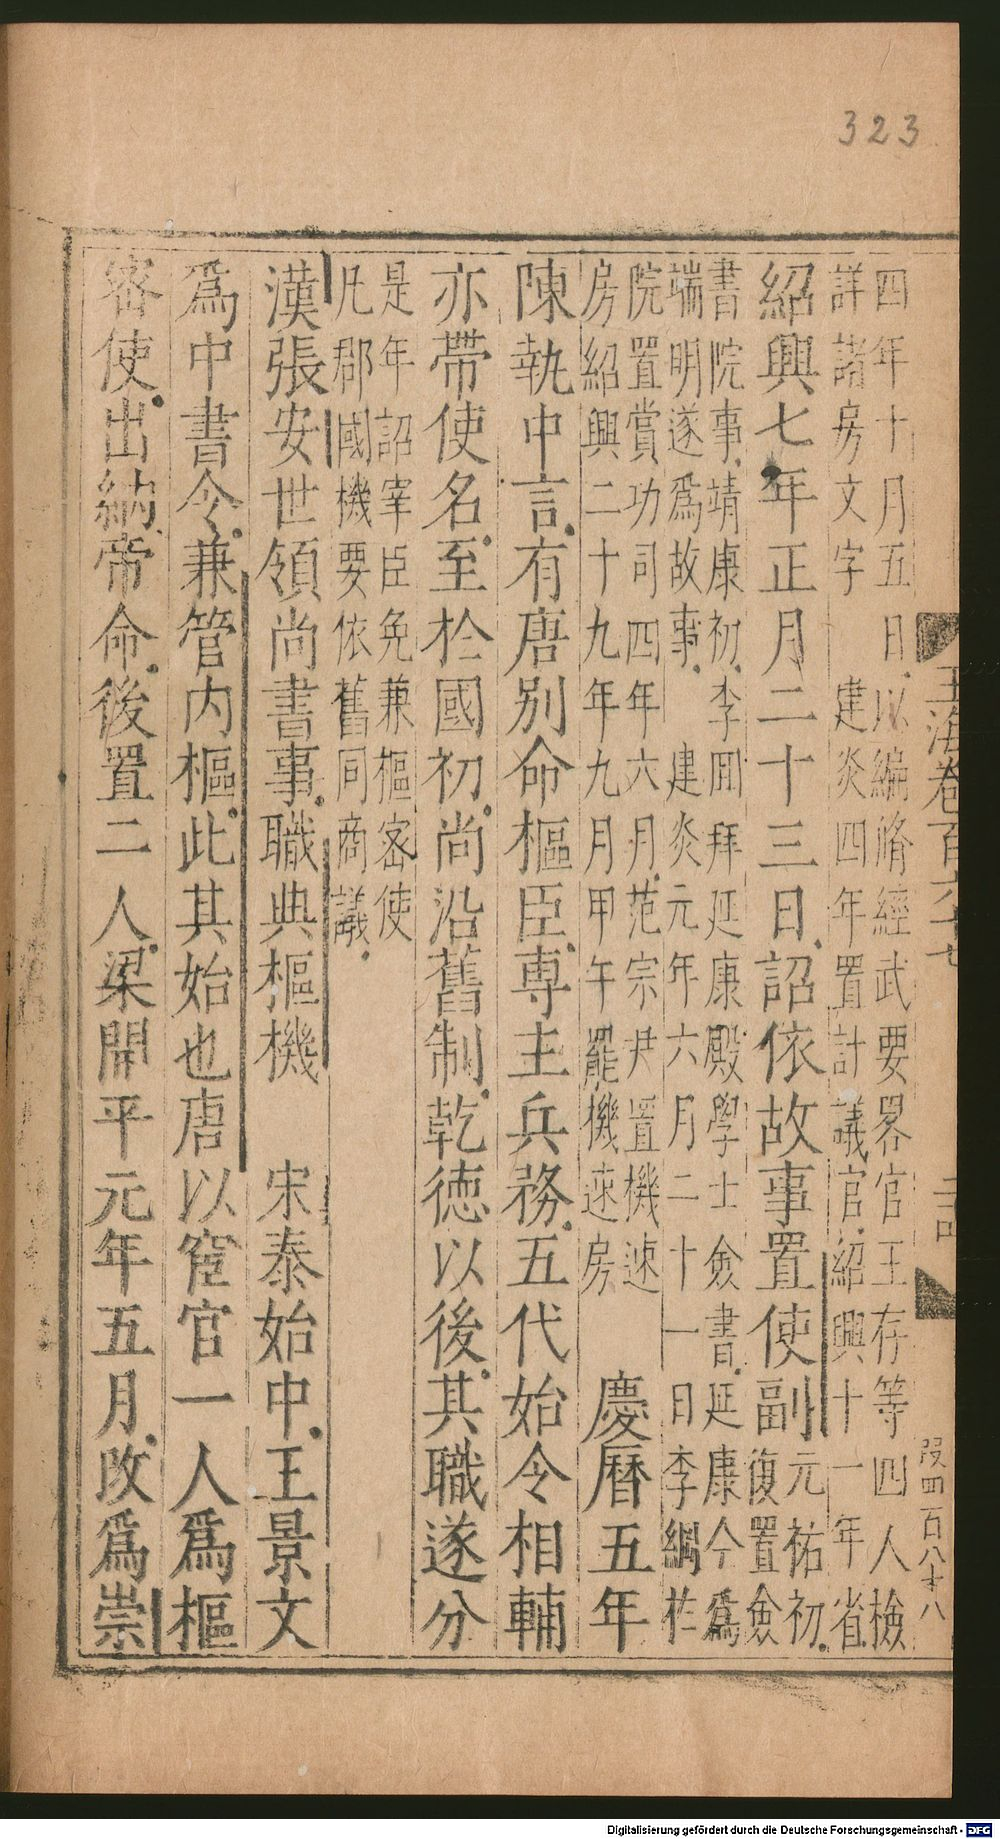 323
四年十月五日以編脩經武要畧官王存等四人檢
詳諸房文字 建炎四年置計議官紹興十一年省
紹興七年正月二十三日詔依故事置使副
元祐初
復置僉
書院事靖康初李回拜延康殿學士僉書延康今爲
端明遂爲故事 建炎元年六月二十一日李綱於
院置賞功司四年六月范宗尹置機速
房紹興二十九年九月甲午罷機速房
慶曆五年
陳執中言有唐別命樞臣專主兵務五代始令相輔
亦帶使名至於國初尚沿舊制乾德以後其職遂分
是年詔宰臣免兼樞密使
凡郡國機要依舊同商議
漢張安世領尚書事職典樞機 宋泰始中王景文
爲中書令兼管內樞此其始也唐以宦官一人爲樞
密使出納帝命後置二人梁開平元年五月改爲崇
玉海卷百六十七
叚四百八十八
Digitalisierung gefördert durch die Deutsche Forschungsgemeinschaft - DFG